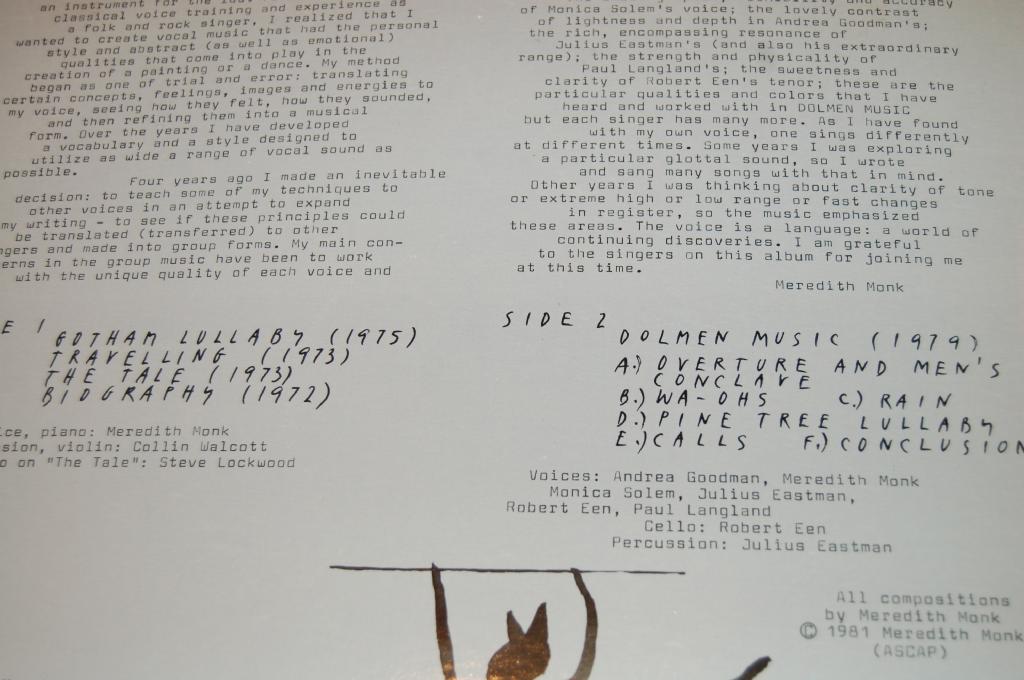 an instrument for the
classical voice training and experience as
a folk and rock singer, I realized that I
wanted to create vocal music that had the personal
style and abstract (as well as emotional)
qualities that come into play in the
creation of a painting or a dance. My method
began as one of trial and error: translating
certain concepts, feelings, images and energies to
my voice, seeing how they felt, how they sounded,
and then refining them into a musical
form. Over the years I have developed
a vocabulary and a style designed to
utilize as wide a range of vocal sound as
possible.
Four years ago I made an inevitable
decision: to teach some of my techniques to
other voices in an attempt to expand
my writing - to see if these principles could
be translated (transferred) to other
ngers and made into group forms. My main con-
erns in the group music have been to work
with the unique quality of each voice and
accuracy
of Monica Solem's voice; the lovely contrast
of lightness and depth in Andrea Goodman's;
the rich, encompassing resonance of
Julius Eastman's (and also his extraordinary
range); the strength and physicality of
Paul Langland's; the sweetness and
clarity of Robert Een's tenor; these are the
particular qualities and colors that I have
heard and worked with in DOLMEN MUSIC
but each singer has many more. As I have found
with my own voice, one sings differently
at different times. Some years I was exploring
a particular glottal sound, so I wrote
and sang many songs with that in mind.
Other years I was thinking about clarity of tone
or extreme high or low range or fast changes
in register, so the music emphasized
these areas. The voice is a language: a world of
continuing discoveries. I am grateful
to the singers on this album for joining me
at this time.
Meredith Monk
E 1
GOTHAM LULLABY (1975)
TRAVELLING (1973)
THE TALE (1973)
BIOGRAPHY (1972)
ice, piano: Meredith Monk
sion, violin: Collin Walcott
o on "The Tale": Steve Lockwood
SIDE 2
DOLMEN MUSIC (1979)
A.) OVERTURE AND MEN'S
CONCLAVE
B.) WA-OHS C.) RAIN
D.) PINE TREE LULLABY
E.) CALLS F.) CONCLUSION
Voices: Andrea Goodman, Meredith Monk
Monica Solem, Julius Eastman,
Robert Een, Paul Langland
Cello: Robert Een
Percussion: Julius Eastman
All compositions
by Meredith Monk
© 1981 Meredith Monk
(ASCAP)